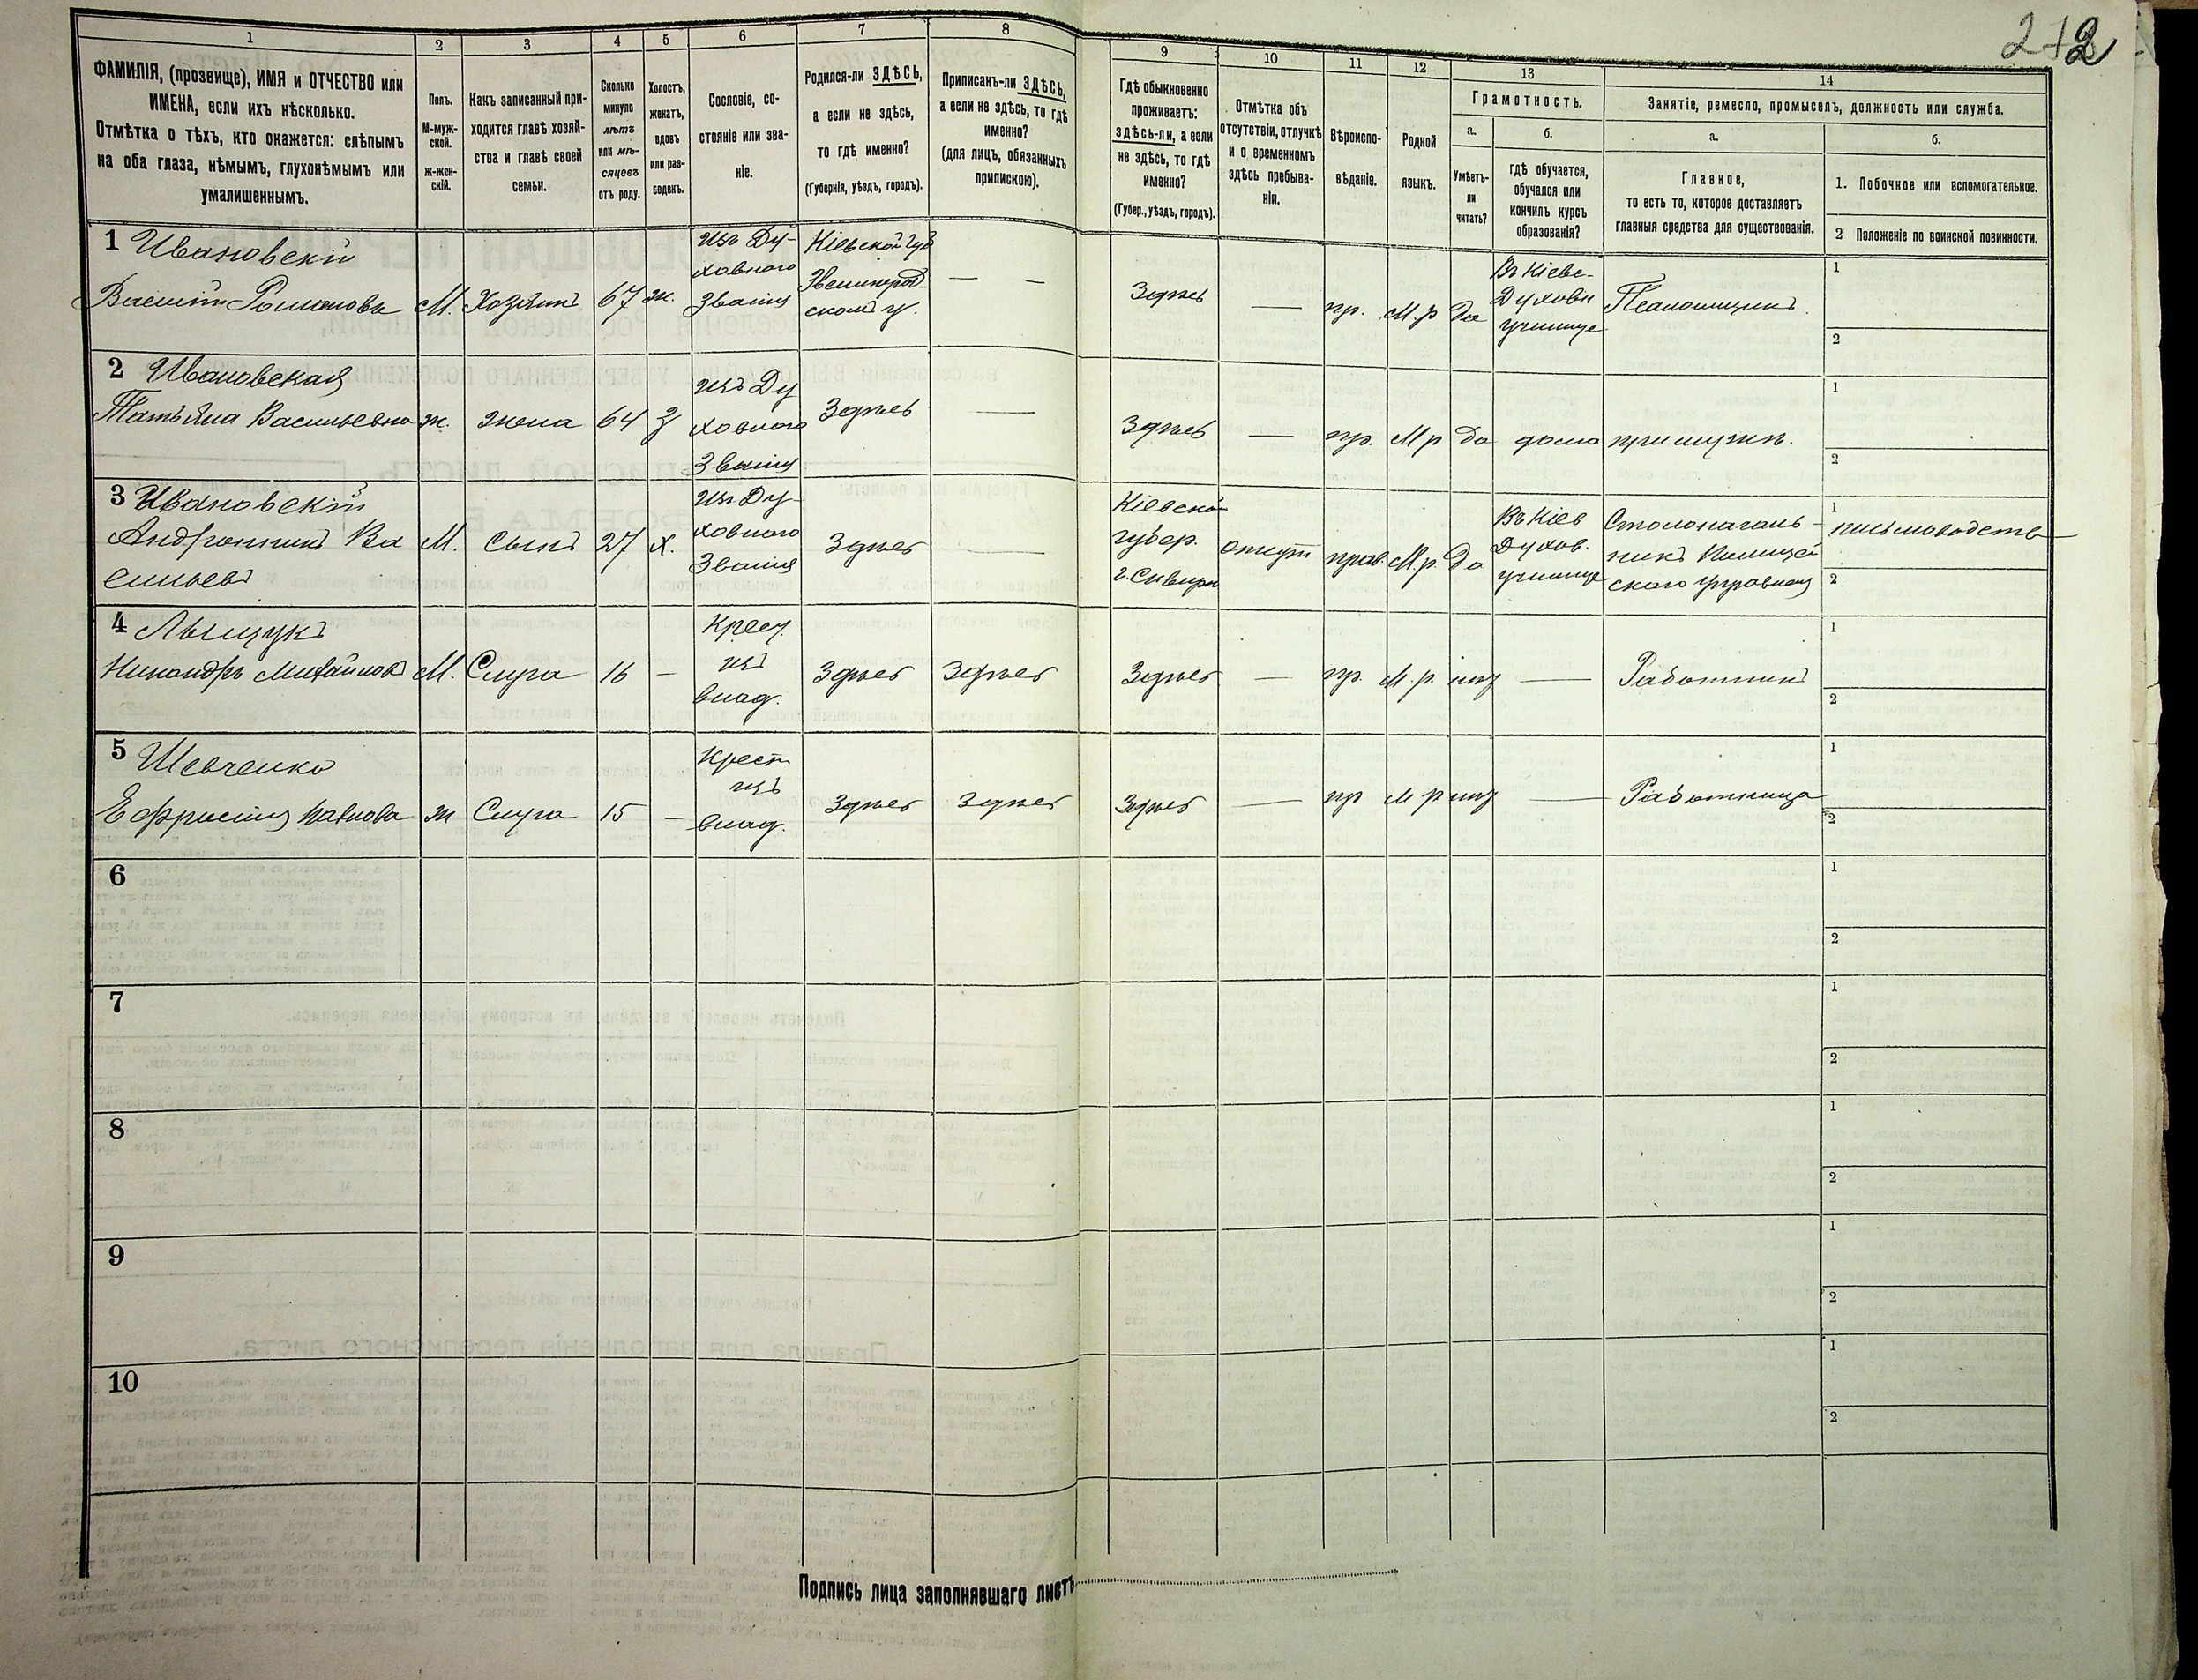 2
1 2 3 4 5 6 7 8 9 10 11 12 13 14
ФАМИЛІЯ, (прозвище), ИМЯ и ОТЧЕСТВО или
ИМЕНА, если ихъ нѣсколько.
Отмѣтка о тѣхъ, кто окажется: слѣпымъ
на оба глаза, нѣмымъ, глухонѣмымъ или
умалишеннымъ.
Полъ.
М-муж-
ской.
ж-жен-
скій.
Какъ записанный при-
ходится главѣ хозяй-
ства и главѣ своей
семьи.
Сколько
минуло
лѣтъ
или мѣ-
сяцевъ
отъ роду.
Холостъ,
женатъ,
вдовъ
или раз-
веденъ.
Сословіе, со-
стояніе или зва-
ніе.
Родился-ли ЗДѢСЬ,
а если не здѣсь,
то гдѣ именно?
(Губернія, уѣздъ, городъ).
Приписанъ-ли ЗДѢСЬ,
а если не здѣсь, то гдѣ
именно?
(для лицъ, обязанныхъ
припискою).
Гдѣ обыкновенно
проживаетъ:
здѣсь-ли, а если
не здѣсь, то гдѣ
именно?
(Губер., уѣздъ, городъ).
Отмѣтка объ
отсутствіи, отлучкѣ
и о временномъ
здѣсь пребыва-
ніи.
Вѣроиспо-
вѣданіе.
Родной
языкъ.
Грамотность.
а.
Умѣетъ-
ли
читать?
б.
гдѣ обучается,
обучался или
кончилъ курсъ
образованія?
Занятіе, ремесло, промыселъ, должность или служба.
а.
Главное,
то есть то, которое доставляетъ
главныя средства для существованія.
б.
1. Побочное или вспомогательное.
2 Положеніе по воинской повинности.
1 Ивановскій
Василій Романовъ
М.
Хозяинъ
67
ж.
изъ Ду-
ховнаго
Званія
Кіевской губ
Звенигород-
скомъ у.
— —
Здѣсь
—
пр.
М.р
Да
Въ Кіевс-
Духовн
училище
Псаломщикъ.
1
2
2 Ивановская
Татьяна Васильевна
ж.
жена
64
З
изъ Ду
ховнаго
Званія
Здѣсь
—
Здѣсь
—
пр.
М р
Да
дома
при мужѣ.
1
2
3 Ивановскій
Андроникъ Ва
сильевъ
М.
Сынъ
27
х.
изъ Ду-
ховнаго
Званія
Здѣсь
—
Кіевской
губер.
г. Сквира
отсут
прав.
М.р.
Да
Въ Кіев
Духов.
училище
Столоначаль-
никъ Полицей
скаго Управленія
1 письмоводство
2
4 Лыщукъ
Никандръ Михайловъ
М.
Слуга
16
—
Крест.
изъ
влад.
Здѣсь
Здѣсь
Здѣсь
—
пр.
М.р.
нѣт
—
Работникъ
1
2
5 Шевченко
Ефросинія Павлова
ж
Слуга
15
—
Крест
изъ
влад.
Здѣсь
Здѣсь
Здѣсь
—
пр
М р
нѣт
—
Работница
1
2
6
1
2
7
1
2
8
1
2
9
1
2
10
1
2
Подпись лица заполнявшаго листъ